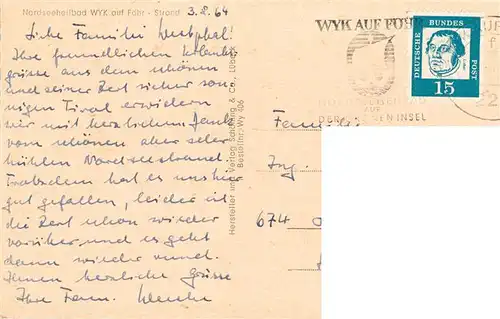 Nordseeheilbad WYK auf Föhr - Strand
3.8.64
Liebe Familie Westphal!
Ihre freundlichen Urlaubs-
grüsse aus dem schönen
und seiner Zeit sicher son-
nigen Tirol erwidern
wir mit herzlichem Dank
vom schönen aber sehr
kühlen Nordseestrand.
Trotzdem hat es uns hier
gut gefallen, leider ist
die Zeit schon wieder
vorüber, und es geht
dann wieder rund.
Ihnen herzliche Grüsse
Ihre Fam.
Hersteller und Verlag Schöning & Co., Lübeck
Bestellnr.: Wy 406
WYK AUF FÖHR
AUF
DER GRÜNEN INSEL
DEUTSCHE BUNDES POST
15
22
Familie
Ing.
674